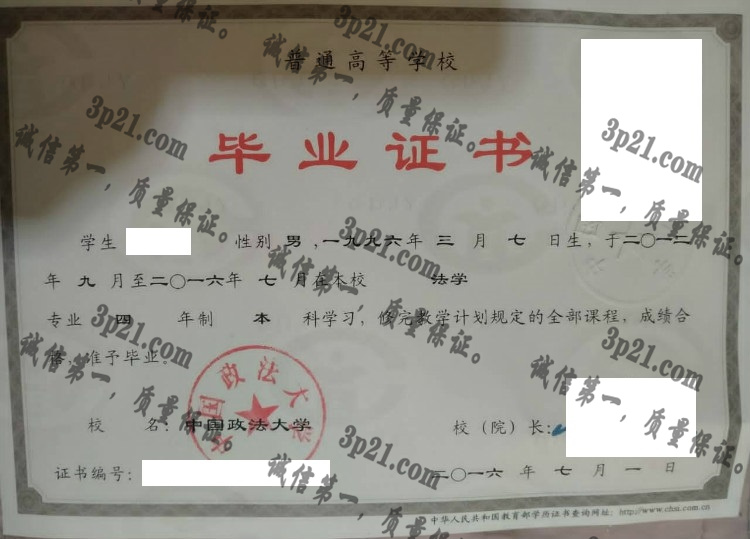 普通高等学校
毕业证书
学生 性别 男 ,一九九六年 三 月 七 日生，于二〇一二
年 九 月至二〇一六年 七 月在本校 法学
专业 四 年制 本 科学习，修完教学计划规定的全部课程，成绩合
格，准予毕业。
中国政法大学
校 名：中国政法大学 校（院）长：
证书编号： 二〇一六 年 七 月 一 日
中华人民共和国教育部学历证书查询网址：http://www.chsi.com.cn
3p21.com
诚信第一，质量保证。
3p21.com
诚信第一，质量保证。
3p21.com
诚信第一，质量保证。
3p21.com
诚信第一，质量保证。
3p21.com
诚信第一，质量保证。
3p21.com
诚信第一，质量保证。
3p21.com
诚信第一，质量保证。